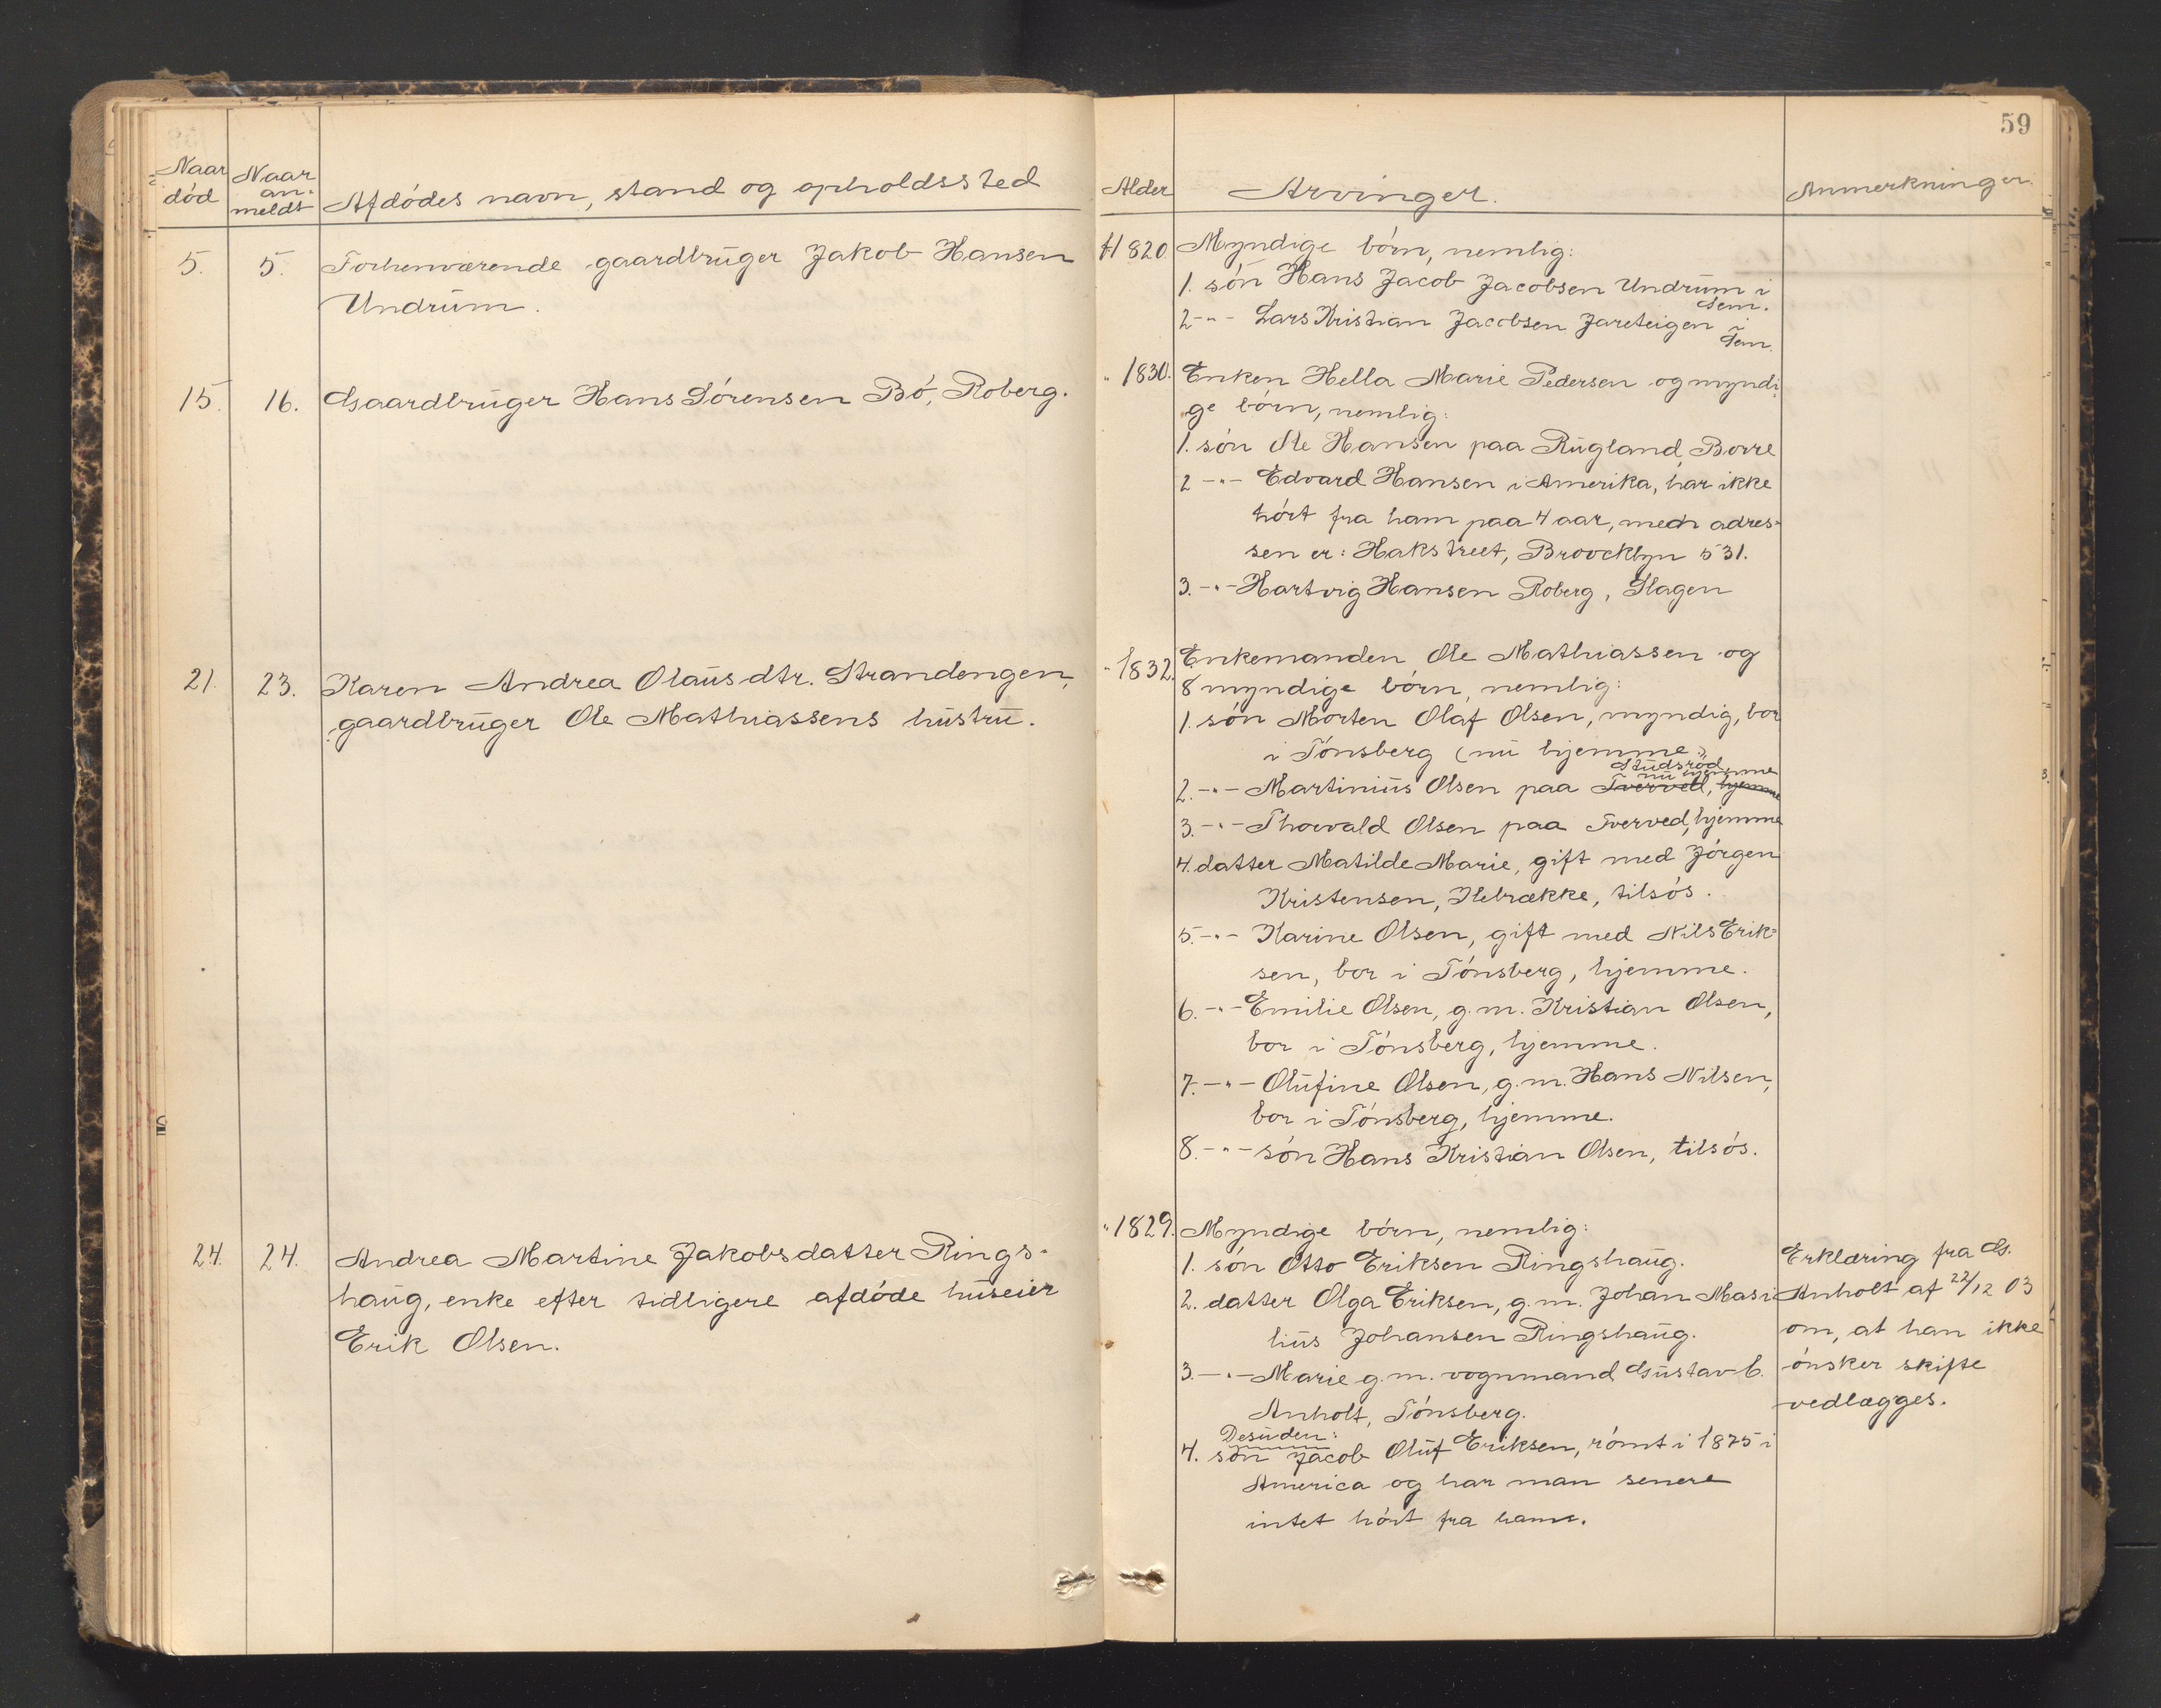 59
Naar død
Naar an-meldt
Afdødes navn, stand og opholdssted
5.
5.
Forhenværende gaardbruger Jakob Hansen
Undrum.
15.
16.
Gaardbruger Hans Sørensen Bø, Roberg.
21.
23.
Karen Andrea Olausdtr. Strandengen,
gaardbruger Ole Mathiassens hustru.
24.
24.
Andrea Martine Jakobsdatter Rings-
haug, enke efter tidligere afdøde huseier
Erik Olsen.
Alder
Arvinger.
Anmerkninger.
1820.
Myndige børn, nemlig:
1. søn Hans Jacob Jacobsen Undrum i
Sem.
2 -"- Lars Kristian Jacobsen Jareteigen i
Sem.
" 1830.
Enken Hella Marie Pedersen og myndi-
ge børn, nemlig:
1. søn Ole Hansen paa Rugland, Borre
2 -"- Edvard Hansen i Amerika, har ikke
hørt fra ham paa 4 aar, men adres-
sen er: Hakstreet, Broocklyn 531.
3. -"- Hartvig Hansen Roberg, Slagen
" 1832.
Enkemanden Ole Mathiassen og
8 myndige børn, nemlig:
1. søn Morten Olaf Olsen, myndig, bor
i Tønsberg (nu hjemme)
Studsrød,
nu hjemme
2. -"- Martinius Olsen paa Tverved, hjemme
3. -"- Thorvald Olsen paa Tverved, hjemme
4. datter Matilde Marie, gift med Jørgen
Kristensen, Klebrække, tilsøs.
5. -"- Karine Olsen, gift med Nils Erik-
sen, bor i Tønsberg, hjemme.
6. -"- Emilie Olsen, g.m. Kristian Olsen,
bor i Tønsberg, hjemme.
7. -"- Olufine Olsen, g.m. Hans Nilsen,
bor i Tønsberg, hjemme.
8. -"- søn Hans Kristian Olsen, tilsøs.
" 1829.
Myndige børn, nemlig:
1. søn Otto Eriksen Ringshaug.
2. datter Olga Eriksen, g.m. Johan Masi
lius Johansen Ringshaug.
3. -"- Marie g.m. vognmand Gustav C.
Anholt, Tønsberg.
Desuden:
4. søn Jacob Oluf Eriksen, rømt i 1875 i
America og har man senere
intet hørt fra ham.
Erklæring fra G.
Anholt af 22/12 03
om, at han ikke
ønsker skifte
vedlægges.